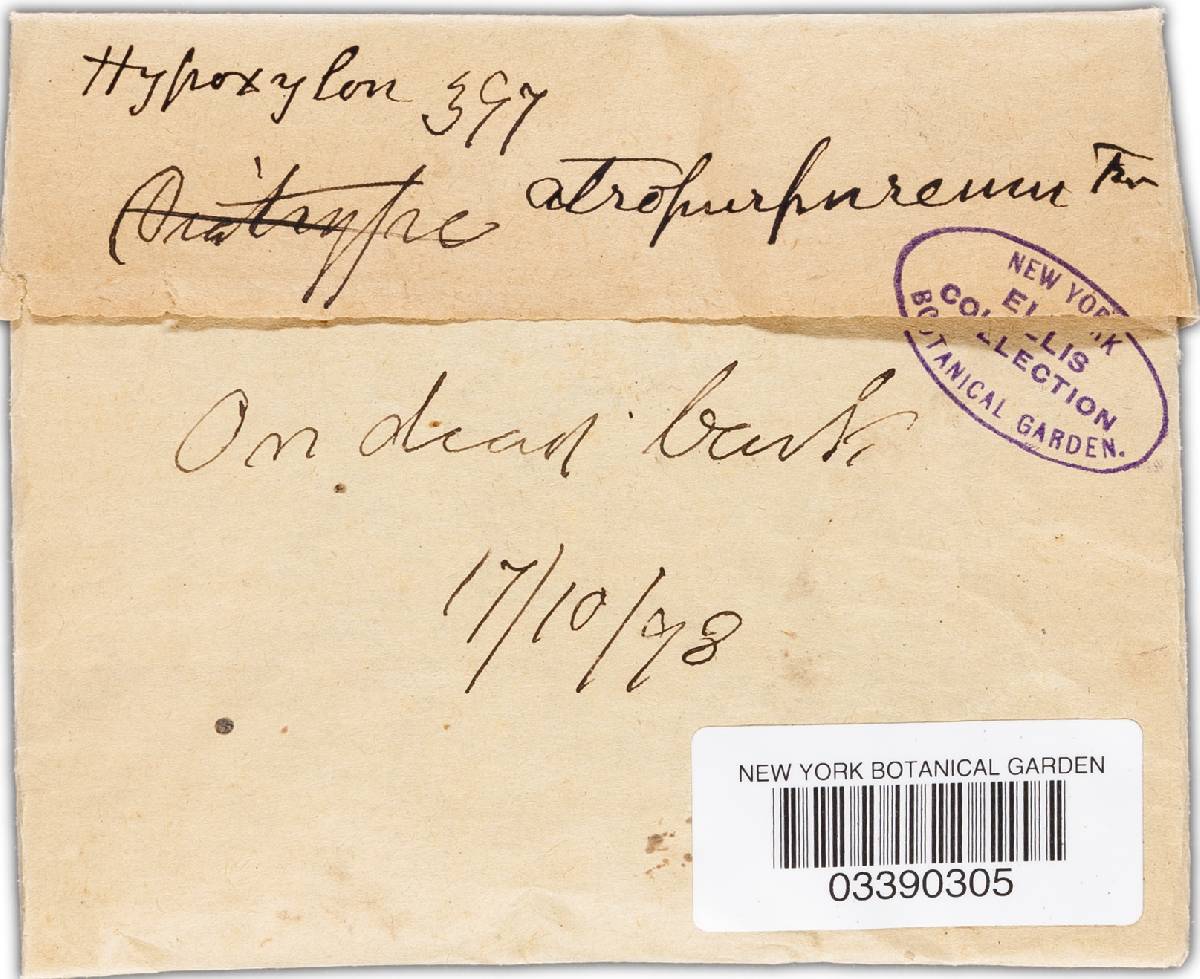 Hypoxylon 397
Diatrype atropurpureum Fr
NEW YORK
ELLIS
COLLECTION
BOTANICAL GARDEN.
On dead bark
17/10/98
NEW YORK BOTANICAL GARDEN
03390305